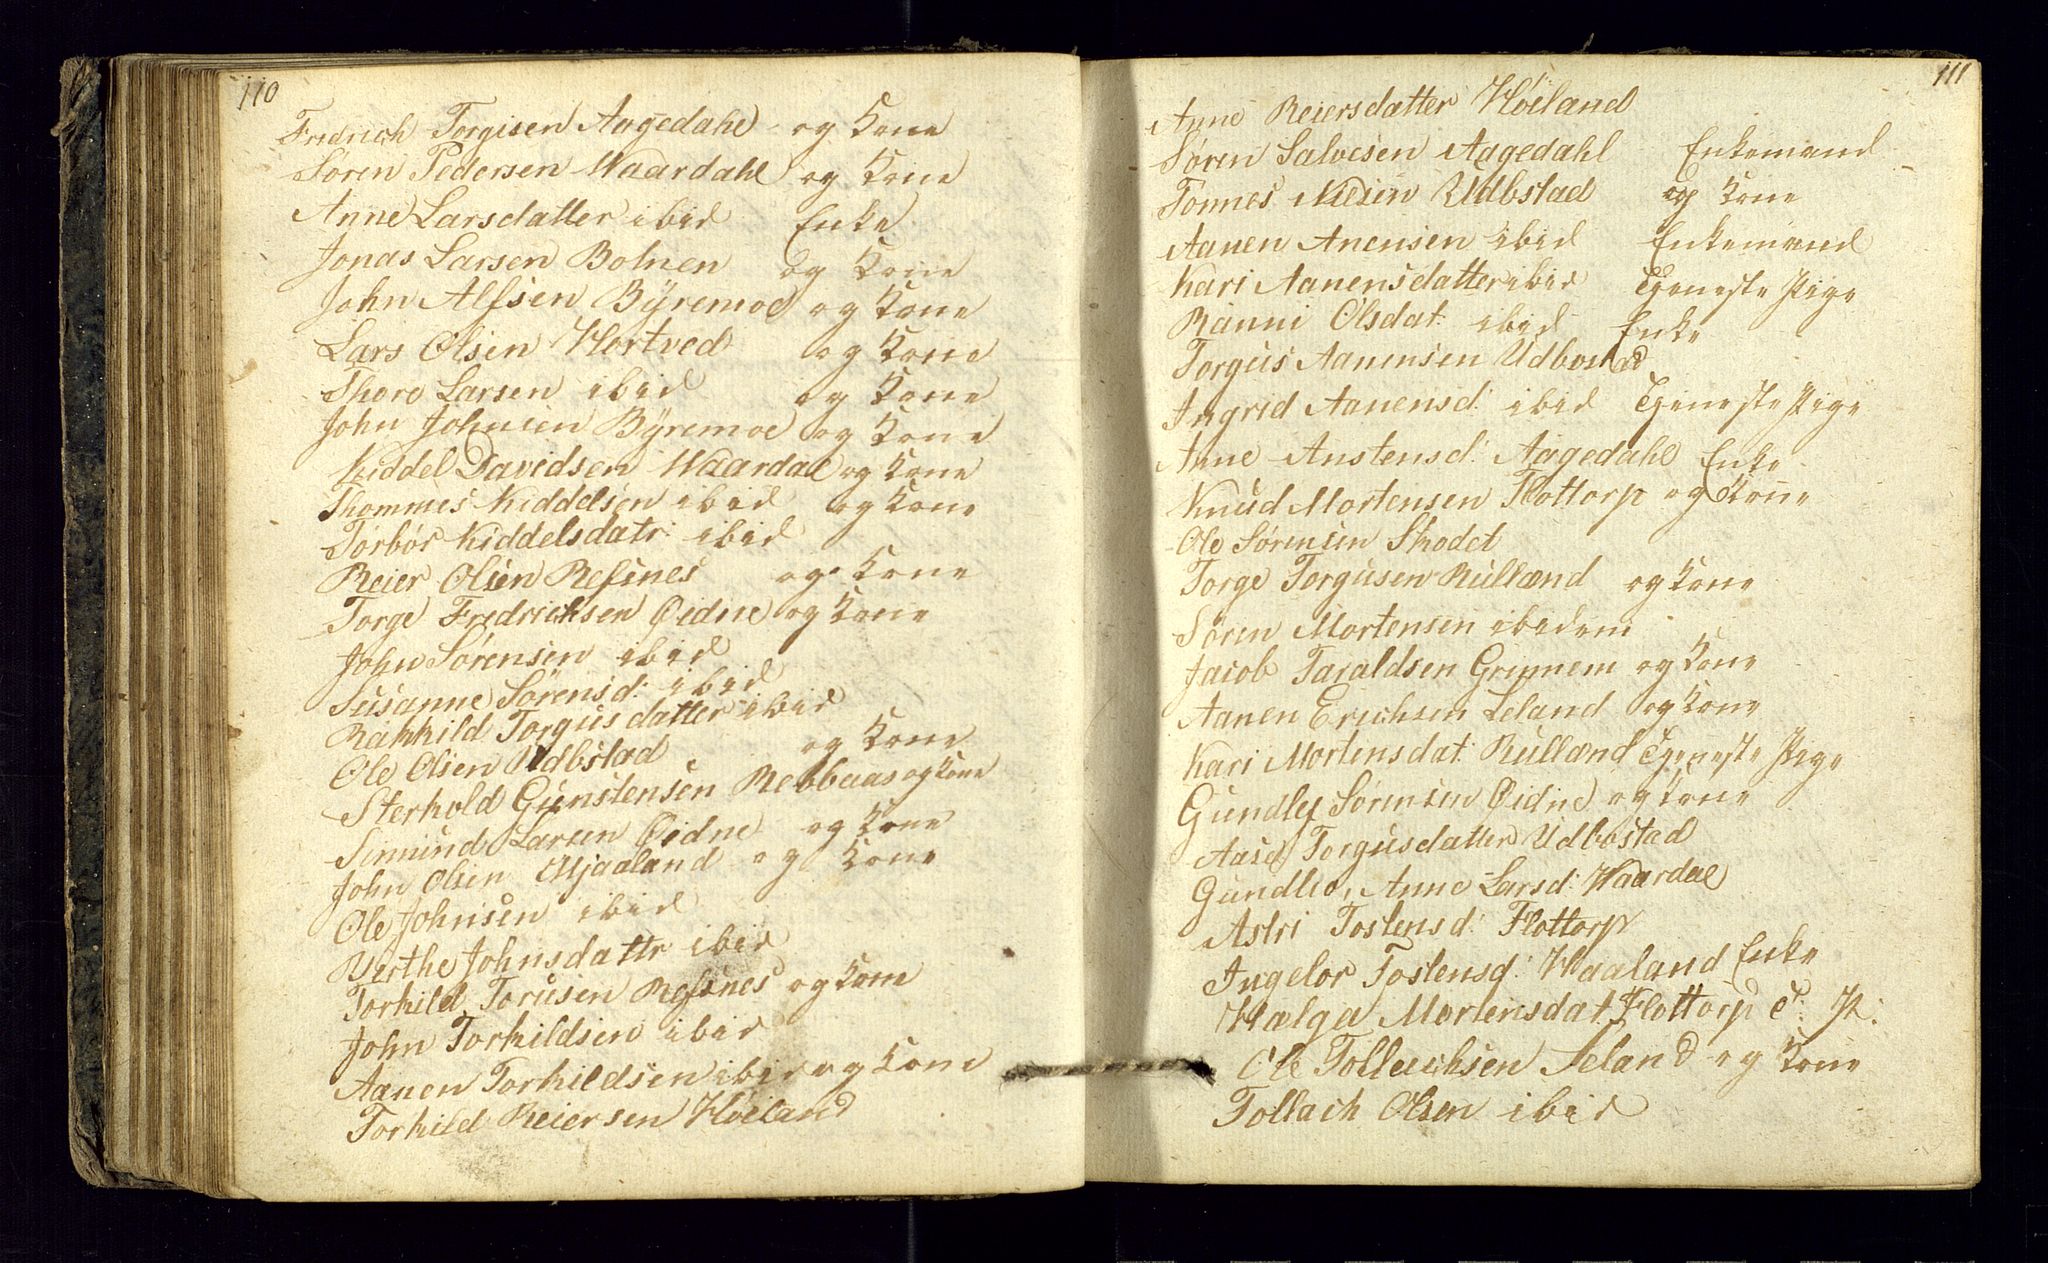 110
Fredrich Torgisen Aagedahl og Kone
Søren Pedersen Waardahl og Kone
Anne Larsdatter ibid Enke
Jonas Larsen Bolnen og Kone
John Alfsen Bÿremoe og Kone
Lars Olsen Hortved og Kone
Thore Larsen ibid og Kone
John Johnsen Bÿremoe og Kone
Kiddel Davidsen Waardal og Kone
Thommes Kiddelsen ibid og Kone
Torbor Kiddelsdatr: ibid
Reier Olsen Refsnes og Kone
Torge Fredrichsen Øidne og Kone
John Sørensen ibid
Susanne Sørensd: ibid
Rakkild Torgusdatter ibid
Ole Olsen Udbstad og Kone
Sterkold Gunstensen Rebbaas og Kone
Simund Larsen Øidne og Kone
John Olsen Mjaaland og Kone
Ole Johnsen ibid
Berthe Johnsdattr ibid
Torkild Torusen Refsnes og Kone
John Torkildsen ibid
Aanen Torkildsen ibid og Kone
Torkild Reiersen Høeland
111
Anne Reiersdatter Høeland
Søren Salvesen Aagedahl Enkemand
Tonnes Nilsen Udbstad og Kone
Aanen Anensen ibid Enkemand
Kari Aanensdatter ibid Tjeneste Pige
Ranni Olsdat: ibid Enke
Torgus Aanensen Udbostad
Ingrid Aanensd: ibid Tjeneste Pige
Anne Anstensd: Aagedahl Enke
Knud Mortensen Flottorp og Kone
Ole Sørensen Skodet
Torge Torgusen Rulland og Kone
Søren Mortensen ibidem
Jacob Taraldsen Grinnem og Kone
Aanen Erichsen Leland og Kone
Kari Mortensdat: Rulland Tjeneste Pige
Gundlef Sørensen Øidne og Kone
Aase Torgusdatter Udbostad
Anne Larsd: Waardal
Astri Tostensd: Flottorp
Ingelor Tostensd: Haaland Enke
Hælga Mortensdat Flottorp T: P:
Ole Tollachsen Seland og Kone
Tollach Olsen ibid